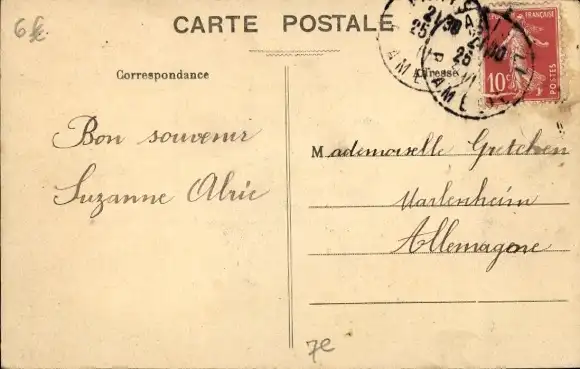 6€
CARTE POSTALE
Correspondance
Adresse
FRANÇAISE
10c
POSTES
21 30
25
26
Bon souvenir
Suzanne Alric
Mademoiselle Gretchen
Marlenheim
Allemagne
7e